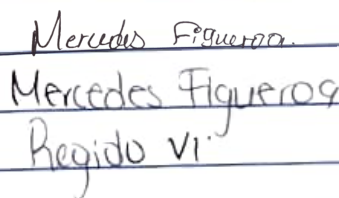 Mercedes Figueroa.
Mercedes Figueroa
Regido VI